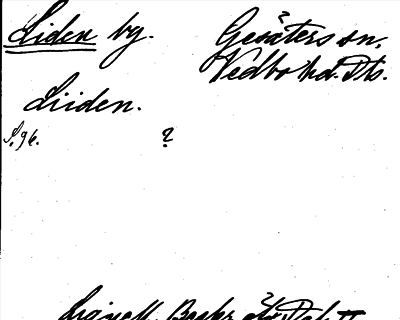 Liden by. Gesäters sn.
Vedbo hd. Dls.
Liiden.
S. 96. ?
Lignell, Beskr.